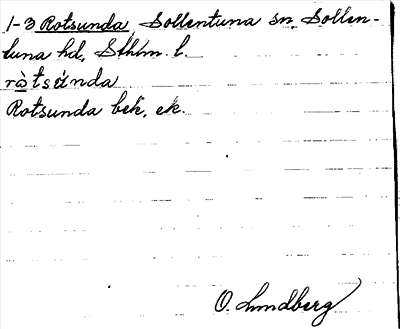 1-3 Rotsunda, Sollentuna sn, Sollen-
tuna hd, Sthlm l.
ròtsúnda
Rotsunda bek, ek.
O. Lundberg